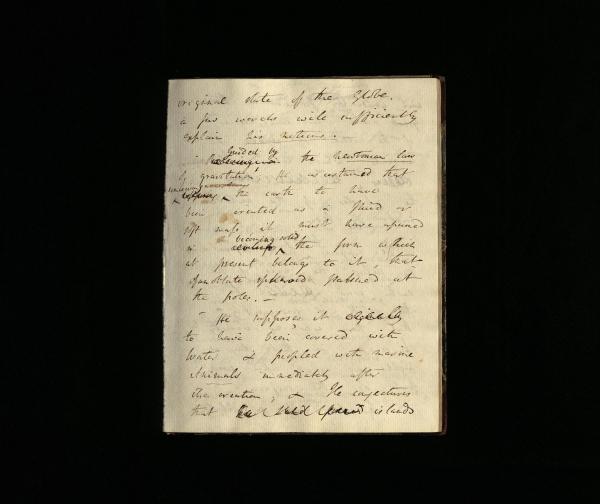 original state of the Globe.
a few words will sufficiently
explain his notions. -
guided by
the Newtonian law
of gravitation, He ascertained that
the earth to have
been created as a fluid or
soft mass it must have assumed
in becoming solid, the form which
at present belongs to it, that
of an oblate spheroid flattened at
the poles. —
He supposes it
to have been covered with
Water & peopled with marine
Animals immediately after
the creation; & He conjectures
that islands